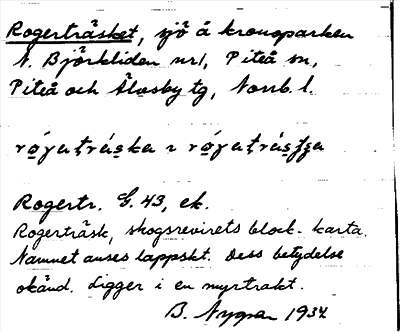 Rogerträsket, sjö å kronoparken
N. Björkliden nr 1, Piteå sn,
Piteå och Älvsby tg, Norrb. l.
Rogertr. G. 43, ek.
Rogerträsk, skogsrevirets block-karta.
Namnet anses lappskt. Dess betydelse
okänd. Ligger i en myrtrakt.
B. Nygren 1934